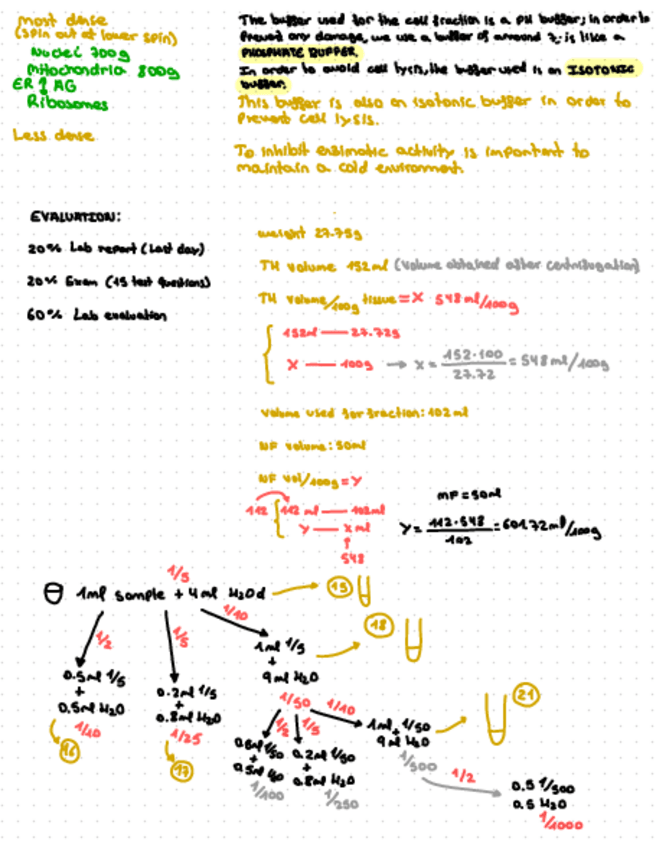 most dense
(spin out at lower spin)
Nuclei 700g
Mitochondria 800g
ER ↑ AG
Ribosomes
Less dense
The buffer used for the cell fraction is a PH buffer; in order to
Prevent any damage, we use a buffer of around 7; is like a
PHOSPHATE BUFFER.
In order to avoid cell lysis, the buffer used is an ISOTONIC
buffer.
This buffer is also an isotonic buffer in order to
Prevent cell lysis.
To inhibit enzimatic activity is important to
maintain a cold environment
EVALUATION:
20% Lab report (Last day)
20% Exam (15 test questions)
60% Lab evaluation
weight 27.75g
TH volume 152ml (volume obtained after centrifugation)
TH volume/100g tissue = X 548 ml/100g
152ml — 27.72g
X — 100g → x = 152·100 / 27.72 = 548 ml/100g
Volume used for fraction: 102 ml
NF volume: 50ml
NF vol/100g = Y
112 112 ml — 102ml
Y — x ml
↑
548
MF = 50ml
Y = 112·548 / 102 = 601.72 ml/100g
1/5
1ml sample + 4 ml H2Od → 15
1/2
1/5
1/10
0.5ml 1/5
+
0.5ml H2O
1/10
16
0.2ml 1/5
+
0.8ml H2O
1/25
17
1ml 1/5
+
9ml H2O
1/50
18
1/2
1/5
1/10
+
0.5ml
1/100
0.2ml 1/50
+
0.8ml H2O
1/250
1ml 1/50
+
9ml H2O
1/500
21
1/2
0.5 1/500
0.5 H2O
1/1000